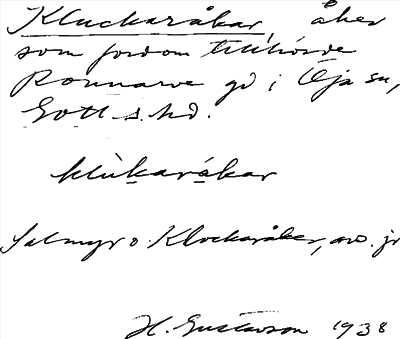 Kluckaråkar, åker
som fordom tillhörde
Ronnarve gd i Öja sn,
Gotl. s. hd.
klùkaråkar
Salmyr o. Klockaråker, av. jr
H. Gustavson 1938